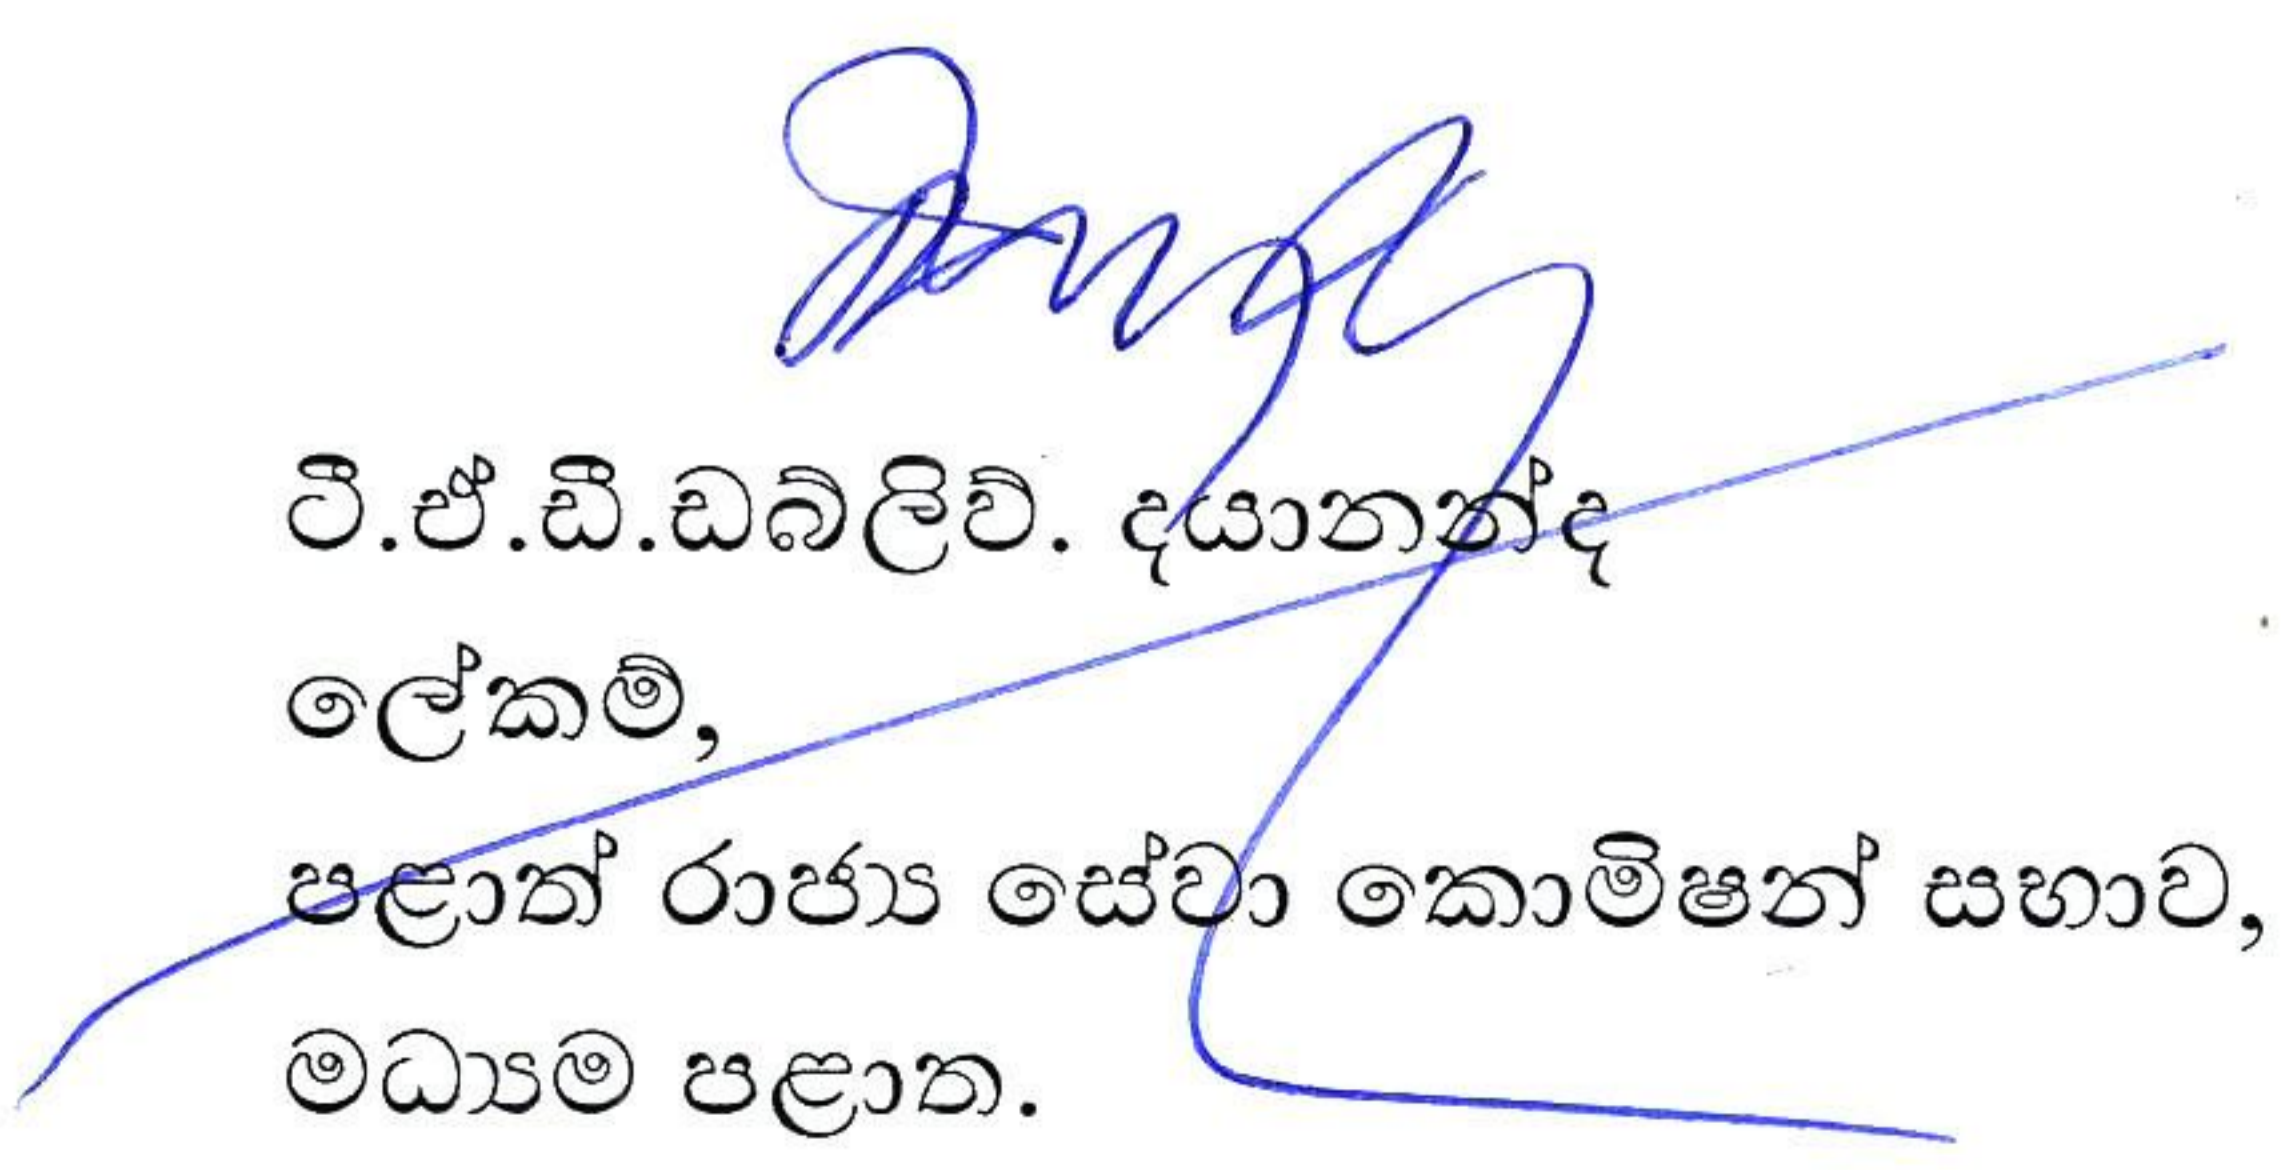 ටී.ඒ.ඩී.ඩබ්ලිව්. දයානන්ද
ලේකම්,
පළාත් රාජ්‍ය සේවා කොමිෂන් සභාව,
මධ්‍යම පළාත.